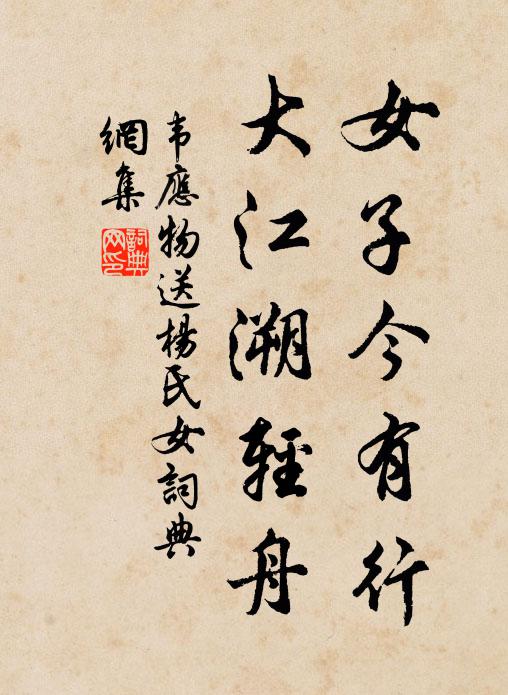 女子今有行
大江溯輕舟
韦應物送楊氏女詞典
網集
詞典
网印